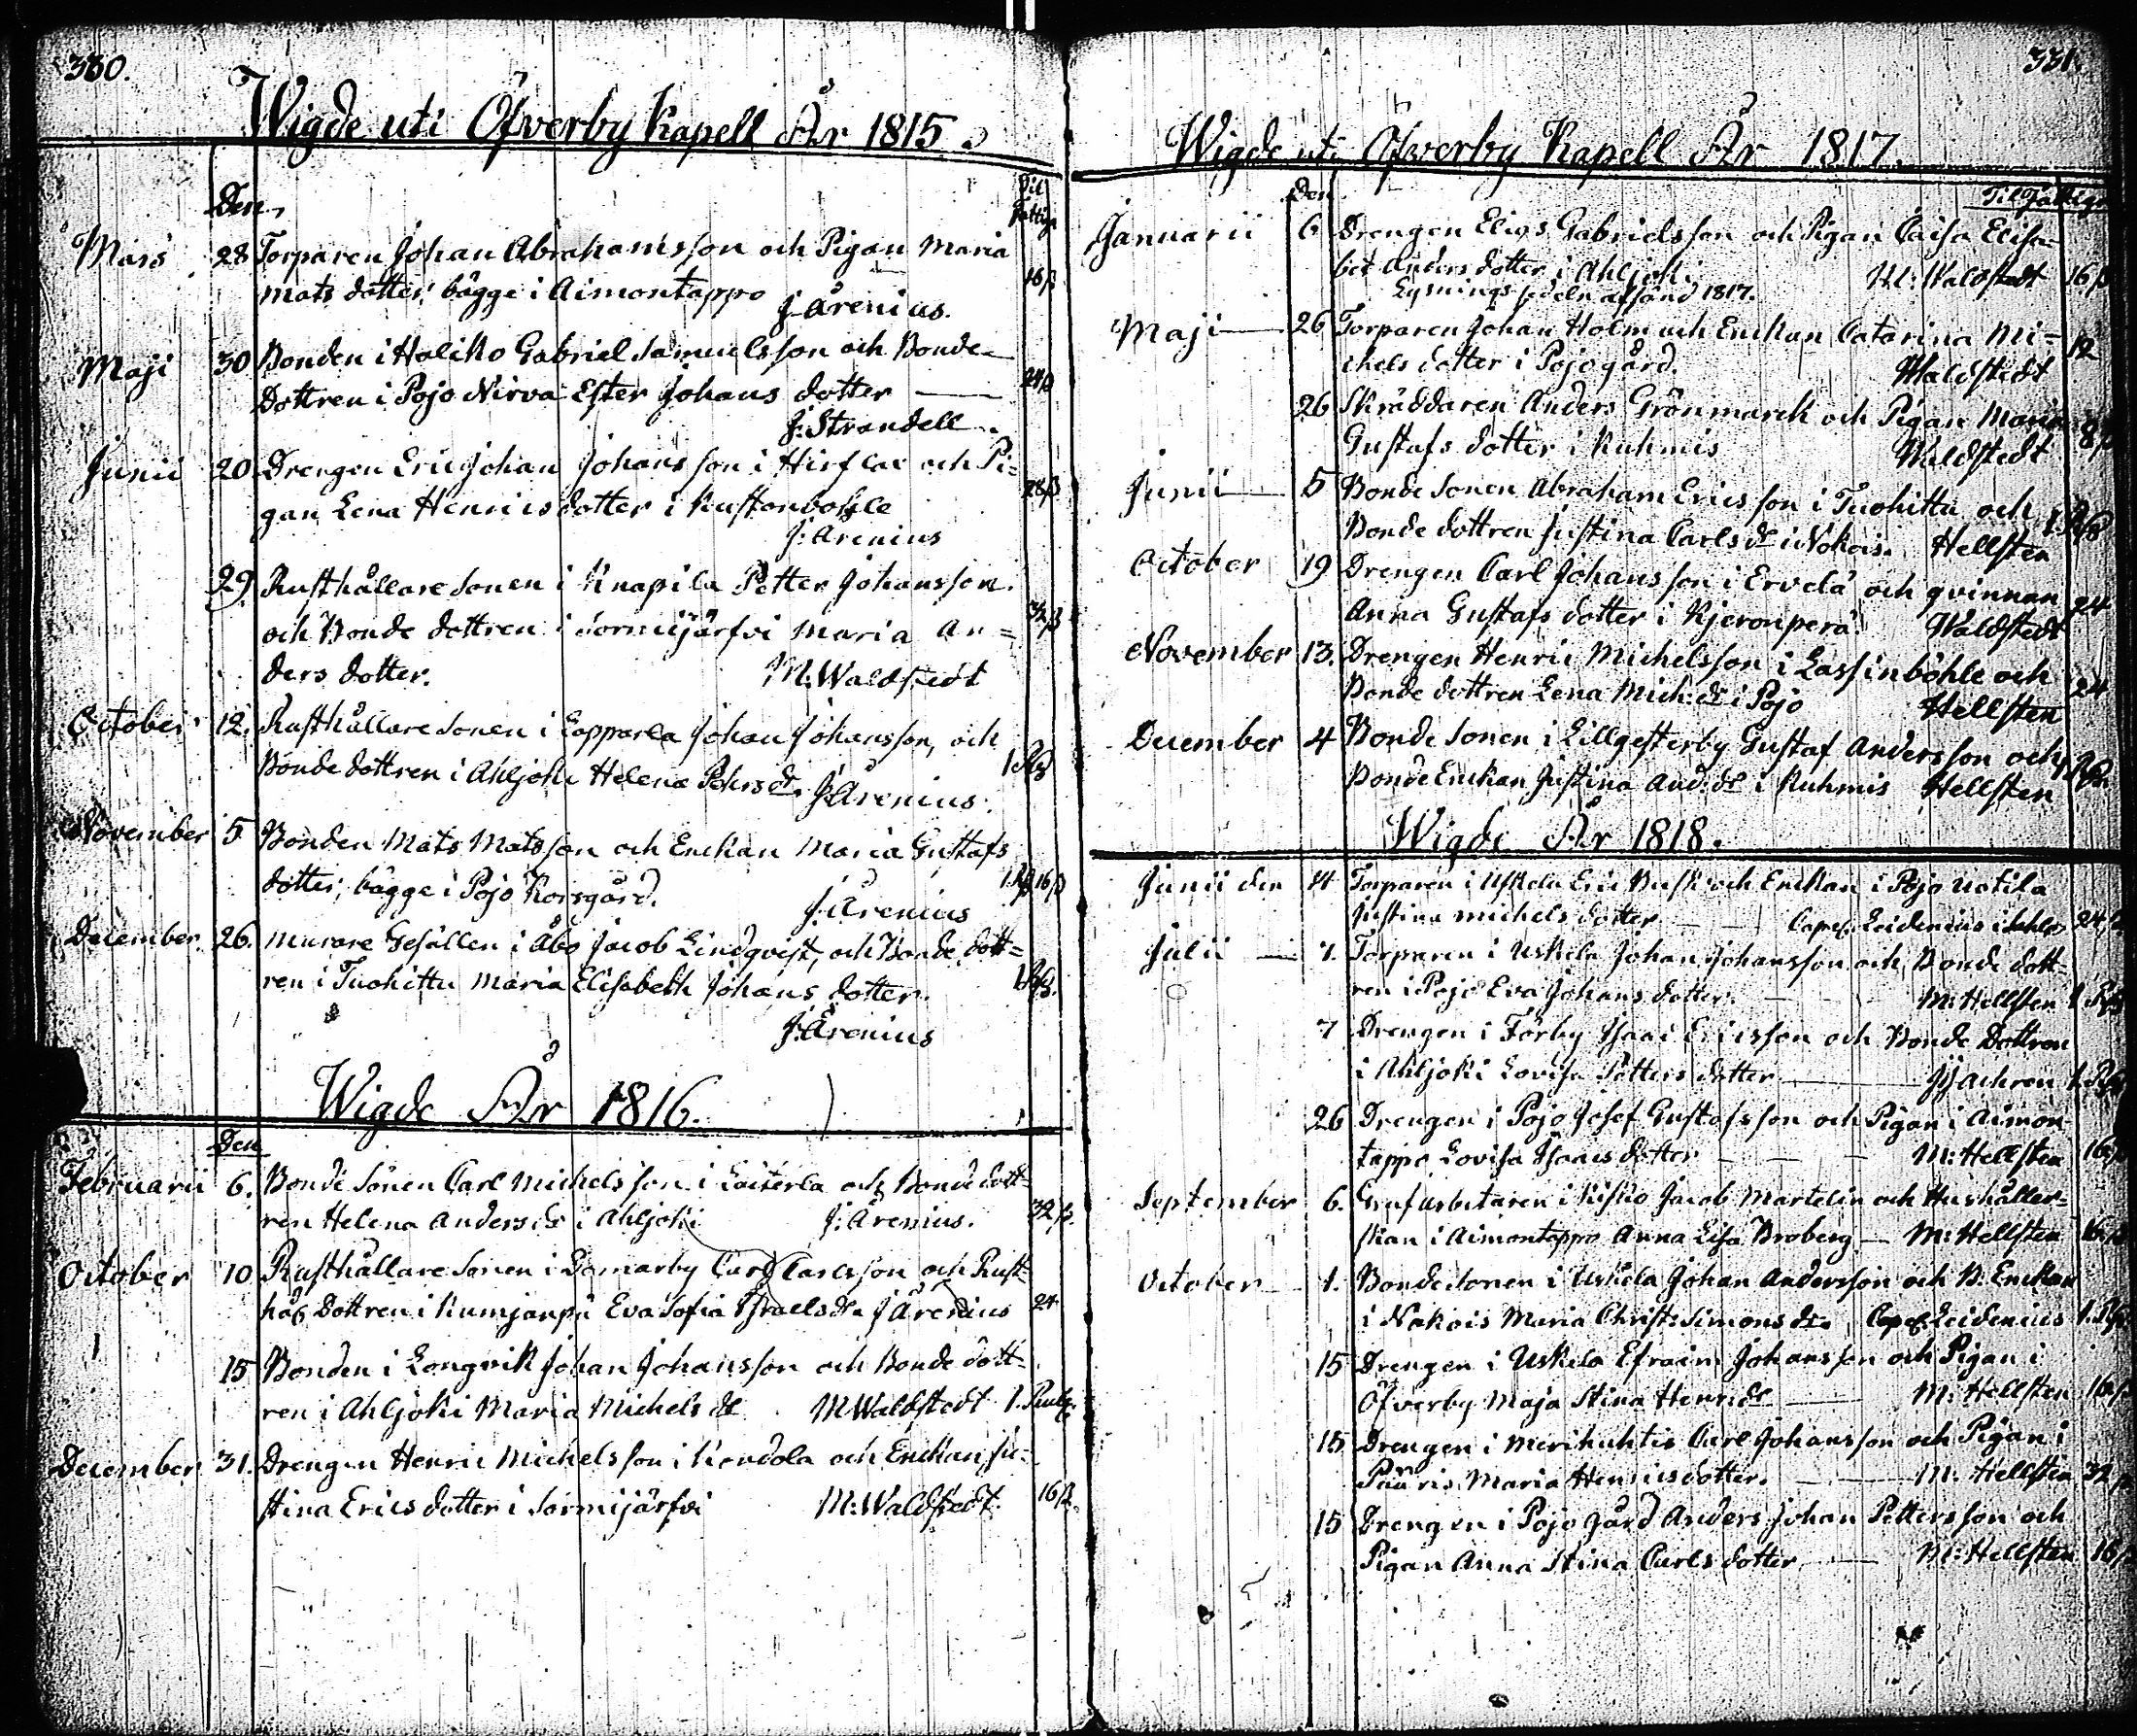 330.
Wigde uti Öfverby Kapell År 1815.
Den Til Fattige
Mars 28 Torparen Johan Abrahamsson och Pigan Maria
Mats dotter, bägge i Aimontappo 16 ß
J. Ärenius.
Maji 30 Bonden i Haliko Gabriel Samuelsson och Bonde-
Dottren i Pojo Nirva Ester Johans dotter — 24 ß
J: Strandell.
Junii 20 Drengen Eric Johan Johansson i och Pi=
gan Lena Henrics dotter i 28 ß
J: Ärenius
29 Rusthållare Sonen i Knapila Petter Johansson
och Bonde dottren i Sormijärfvi Maria An= 32 ß
ders dotter. M: Waldstedt
October 12. Rusthållare Sonen i Lapparla Johan Johansson, och
Bonde dottren i Ahljoki Helena Pehrs dr. 1 R
J: Ärenius.
November 5 Bonden Mats Matsson och Enckan Maria Gustafs
dotter, bägge i Pojo Korsgård. 1. R 16 ß
J: Ärenius
December 26. Murare Gesällen i Åbo Jacob Lindqvist, och Bonde dott=
ren i Tuohittu Maria Elisabeth Johans dotter.
J: Ärenius
Wigde År 1816.
Den
Februarii 6. Bonde Sonen Carl Michelsson i och Bonde dott=
ren Helena Anders dr i Ahljoki J: Ärenius. 32 ß.
October 10 Rusthållare Sonen i Domarby Carl Carlsson och Rust=
håll Dottren i Eva Sofia Israels dr. J Ärenius 24
15 Bonden i Longvik Johan Johansson och Bonde dott=
ren i Ahljoki Maria Michels dr M Waldstedt 1. Rub.
December 31. Drengen Henric Michelsson i och Enckan Ju=
stina Erics dotter i Sormijärfvi M: Waldstedt. 16 ß.
331.
Wigde uti Öfverby Kapell År 1817.
Den Til Fattige
Januarii 6 Drengen Elias Gabrielsson och Pigan Caisa Elisa=
bet Anders dotter i Ahljoki. M: Waldstedt 16 ß
Lysnings sedeln afsänd 1817.
Maji — 26 Torparen Johan Holm och Enckan Catarina Mi= 12
chels dotter i Pojogård. Waldstedt
26 Skräddaren Anders Grönmarck och Pigan Maria 8 ß
Gustafs dotter i Ruhmis Waldstedt
Junii — 5 Bonde Sonen Abraham Ericsson i Tuohittu och
Bonde dottren Justina Carls dr i Nokois. Hellsten
October 19 Drengen Carl Johansson i Ervelä och qvinnan 24
Anna Gustafs dotter i Kjeronperä. Waldstedt
November 13. Drengen Henric Michelsson i Lassinböhle och 24
Bonde dottren Lena Mich: dr i Pojo Hellsten
December 4 Bonde Sonen i Lillgesterby Gustaf Andersson och
Bonde Enckan Justina And: dr i Ruhmis Hellsten
Wigde År 1818.
Junii den 14 Torparen i Uskela Eric Busk och Enckan i Pojo Uotila
Justina Michels dotter — Capel. Leidenius 24 ß
Julii — 7. Torparen i Uskela Johan Johansson och Bonde dott=
ren i Pojo Eva Johans dotter. — M: Hellsten 1 R
7 Drengen i Förby Isaac Ericsson och Bonde Dottren
i Ahljoki Lovisa Petters dotter —
26 Drengen i Pojo Josef Gustafsson och Pigan i Aimon
tappo Lovisa Isaacs dotter — M: Hellsten 16 ß
September 6. Grufarbetaren i Kisko Jacob Martelin och Hushåller=
skan i Aimontappo Anna Lisa Broberg — M: Hellsten 16 ß
October — 1. Bonde sonen i Uskela Johan Andersson och B: Enckan
i Nokois Maria Christ: Simons dr. Capel. Leidenius 1. R
15 Drengen i Uskela Efraim Johansson och Pigan i
Öfverby Maja Stina Henr: dr — M: Hellsten 16 ß
15 Drengen i Merikuhtis Carl Johansson och Pigan i
Maria Henrics dotter. — M: Hellsten 32 ß
15 Drengen i Pojo gård Anders Johan Pettersson och
Pigan Anna Stina Carls dotter — M: Hellsten 16 ß